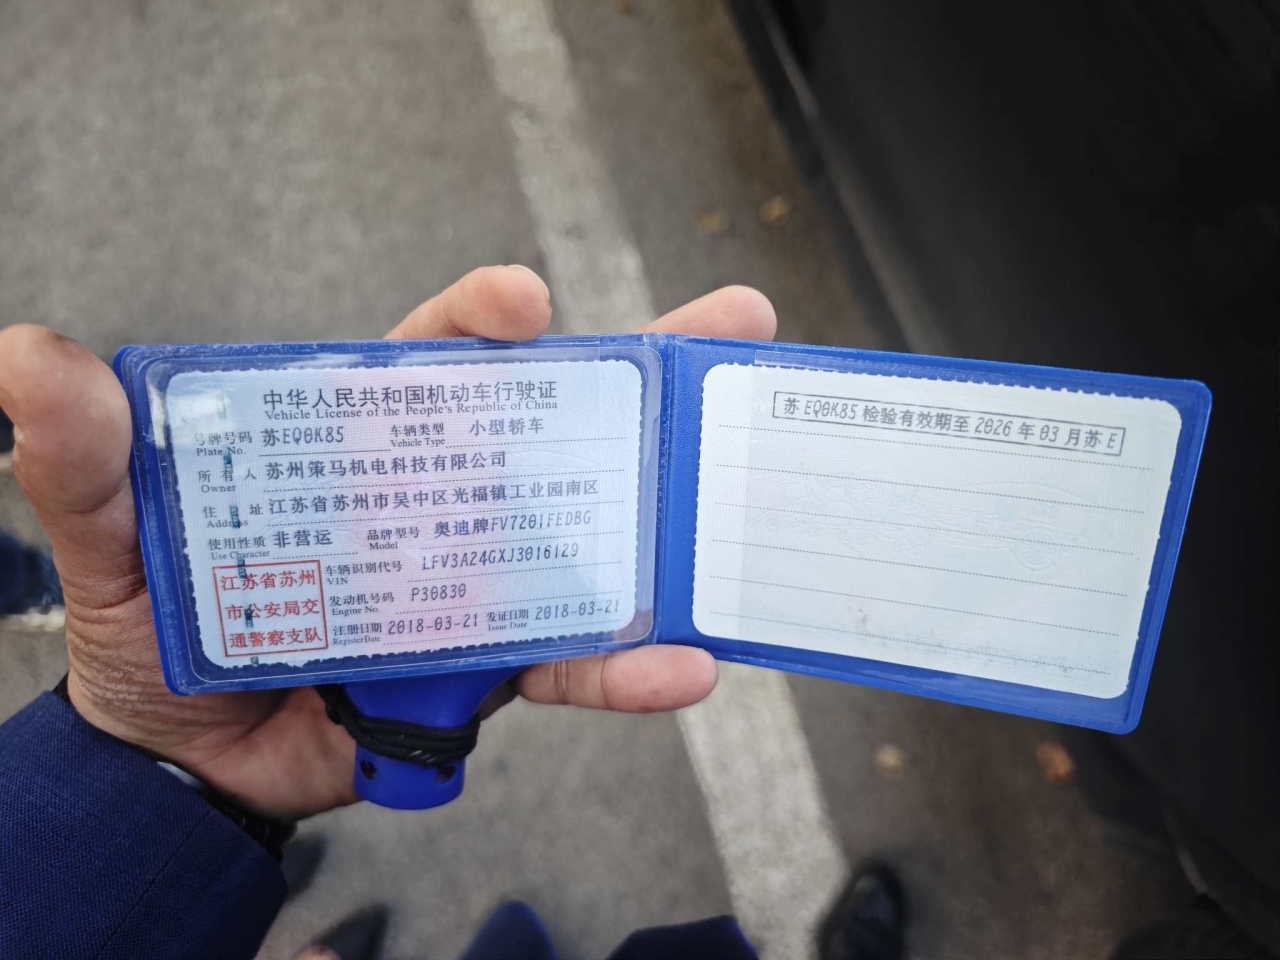 中华人民共和国机动车行驶证
Vehicle License of the People's Republic of China
号牌号码 苏EQ0K85 车辆类型 小型轿车
Plate No. Vehicle Type
所有人 苏州策马机电科技有限公司
Owner
住址 江苏省苏州市吴中区光福镇工业园南区
Address
使用性质 非营运 品牌型号 奥迪牌FV7201FEDBG
Use Character Model
江苏省苏州
市公安局交
通警察支队
车辆识别代号 LFV3A24GXJ3016129
VIN
发动机号码 P30830
Engine No.
注册日期 2018-03-21 发证日期 2018-03-21
Register Date Issue Date
苏EQ0K85 检验有效期至 2026 年 03 月苏 E